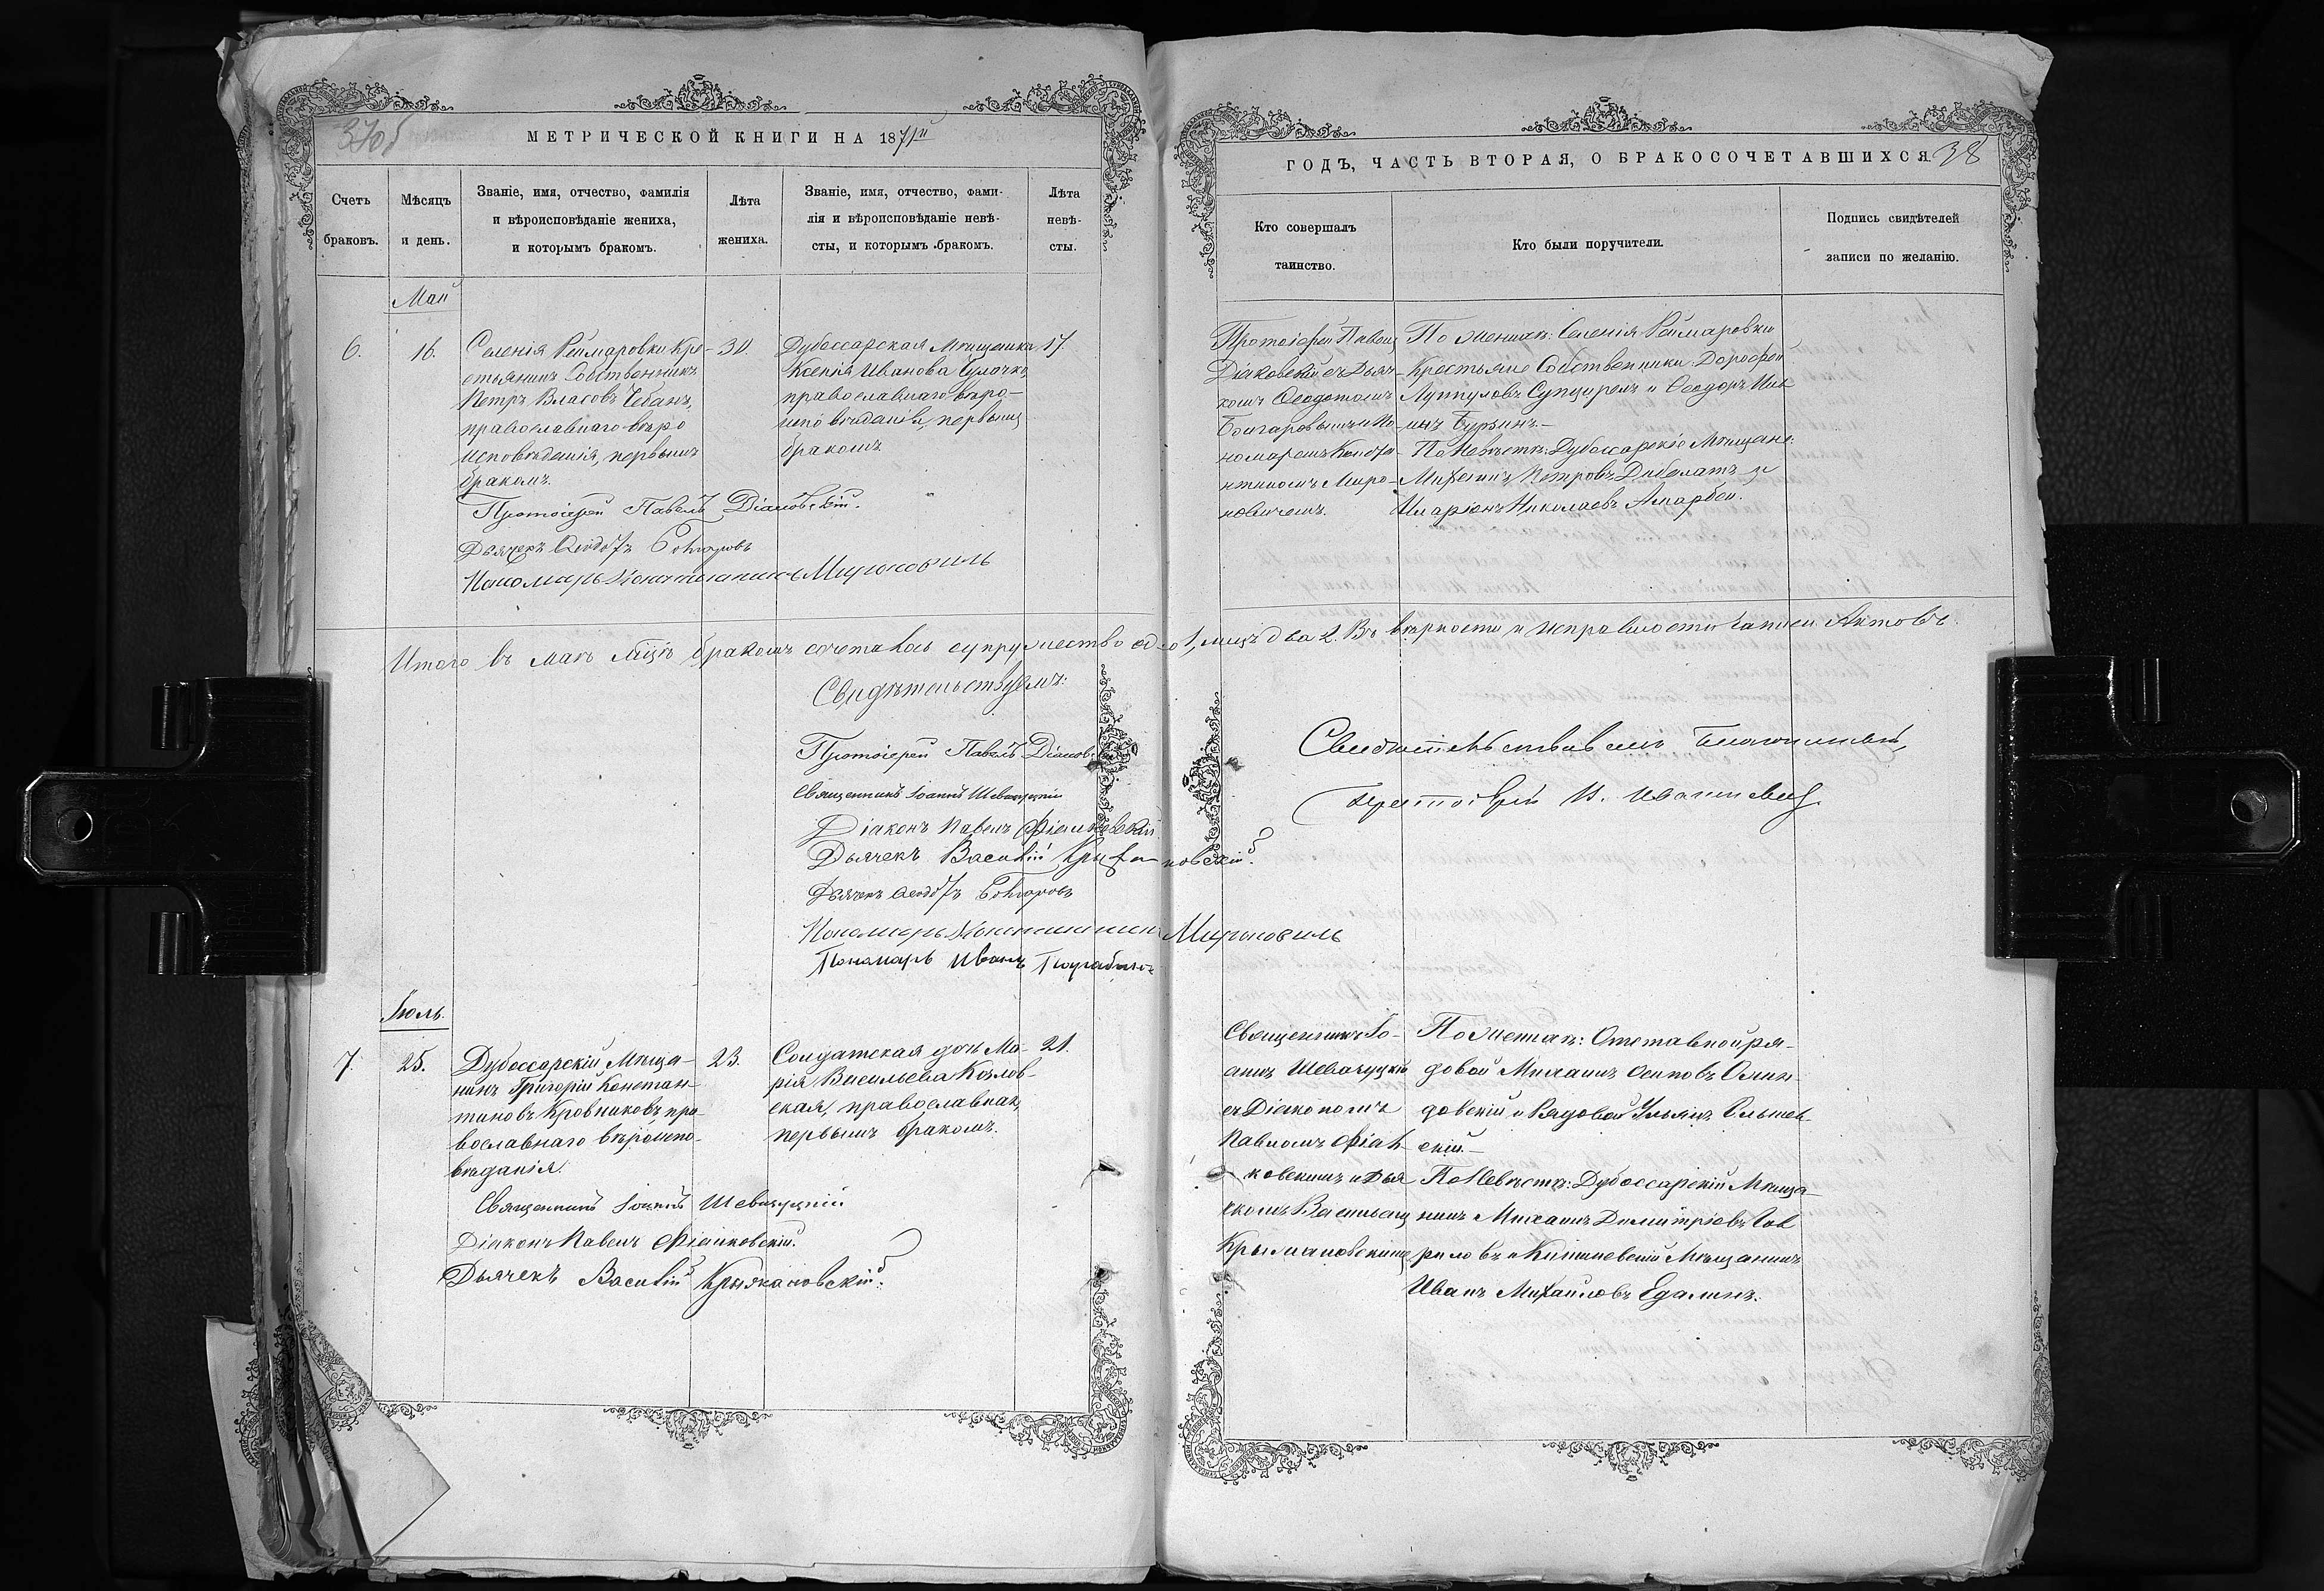 37об
МЕТРИЧЕСКОЙ КНИГИ НА 1871й
Счетъ браковъ.
Мѣсяцъ и день.
Званіе, имя, отчество, фамилія
и вѣроисповѣданіе жениха,
и которымъ бракомъ.
Лѣта жениха.
Званіе, имя, отчество, фами-
лія и вѣроисповѣданіе невѣ-
сты, и которымъ бракомъ.
Лѣта невѣ-
сты.
Май
6.
16.
Селенія Реймаровки Кре-
стьянинъ Собственникъ
Петръ Власовъ Чебанъ,
православнаго вѣро
исповѣданія, первымъ
бракомъ.
30.
Дубоссарская Мѣщанка
Ксенія Иванова
православнаго вѣро-
исповѣданія, первымъ
бракомъ.
17
Протоіерей Павелъ Діаковскій.
Дьячекъ Ѳеодотъ Болгаровъ
Пономарь Константинъ Мироновичь
Итого въ маѣ мѣсяцѣ бракомъ сочеталось супружество одно 1, лицъ два 2. Въ вѣрности и исправности записи Актовъ
Свидѣтельствуемъ:
Протоіерей Павелъ Діаковскій
Священникъ Іоаннъ Шевчуцкій
Діаконъ Павелъ Фіалковскій.
Дьячекъ Василій Крыжановскій.
Дьячекъ Ѳеодотъ Болгаровъ
Пономарь Константинъ Мироновичь
Пономарь Иванъ
Іюль.
7.
25.
Дубоссарскій Мѣща-
нинъ Григорій Констан-
тиновъ Кровниковъ, пра-
вославнаго вѣроиспо-
вѣданія.
23.
Солдатская дочь Ма-
рія Васильева Козлов-
ская, православная,
первымъ бракомъ.
21.
Священникъ Іоаннъ Шевчуцкій
Діаконъ Павелъ Фіалковскій.
Дьячекъ Василій Крыжановскій.
ГОДЪ, ЧАСТЬ ВТОРАЯ, О БРАКОСОЧЕТАВШИХСЯ.
38
Кто совершалъ
таинство.
Кто были поручители.
Подпись свидѣтелей
записи по желанію.
Протоіерей Павелъ
Діаковскій съ Дьяч-
комъ Ѳеодотомъ
Болгаровымъ и По-
номаремъ Конста-
нтиномъ Миро-
новичемъ.
По Женихѣ: Селенія Реймаровки
Крестьяне Собственники: Дорофей
Луппуловъ и Ѳеодоръ
Бурьянъ.-
По Невѣстѣ: Дубоссарскіе Мѣщане:
Петровъ и
Иларіонъ Николаевъ Амарбеи.
Свидѣтельствовалъ Благочинный,
Протоіерей И.
Священникъ Іо-
аннъ Шевчуцкій
съ Діакономъ
Павломъ Фіал-
ковскимъ и Дья
чкомъ Василіемъ
Крыжановскимъ
По Женихѣ: Отставной ря-
довой Михаилъ Осиповъ
и Рядовой Ульянъ
скій.-
По Невѣстѣ: Дубоссарскій Мѣща-
нинъ Михаилъ Димитріевъ Гав
риловъ и Кишиневскій Мѣщанинъ
Иванъ Михайловъ Едалинъ.